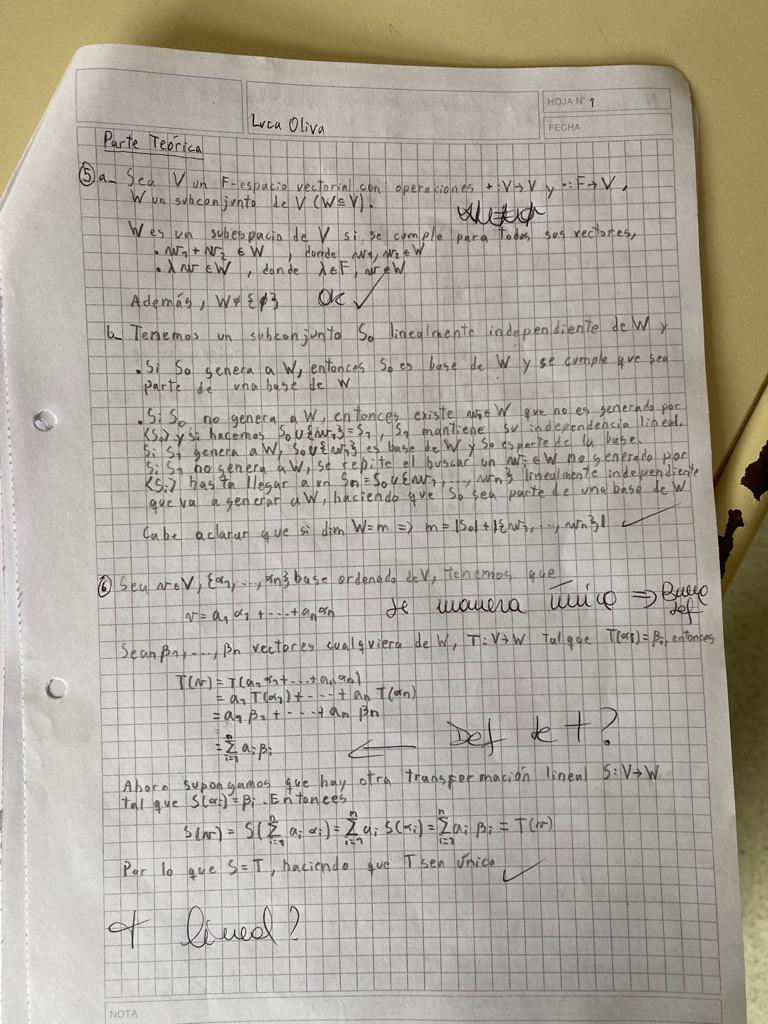 HOJA N° 1
Luca Oliva
FECHA
Parte Teórica
⑤ a- Sea V un F-espacio vectorial con operaciones + : V→V y · : F→V,
W un subconjunto de V (W⊆V).
W es un subespacio de V si se cumple para todos sus vectores,
· w₁ + w₂ ∈ W , donde w₁, w₂ ∈ W
· λw ∈ W , donde λ∈F, w∈W
Además, W ≠ {ϕ} OK ✓
b- Tenemos un subconjunto S₀ linealmente independiente de W y
· Si S₀ genera a W, entonces S₀ es base de W y se cumple que sea
parte de una base de W
· Si S₀ no genera a W, entonces existe w₁ ∈ W que no es generado por
⟨S₀⟩ y si hacemos S₀ ∪ {w₁} = S₁, S₁ mantiene su independencia lineal.
Si S₁ genera a W, S₀ ∪ {w₁} es base de W y S₀ es parte de la base.
Si S₁ no genera a W, se repite el buscar un wᵢ ∈ W no generado por
⟨Sᵢ⟩ hasta llegar a un Sₙ = S₀ ∪ {w₁, ..., wₙ} linealmente independiente
que va a generar a W, haciendo que S₀ sea parte de una base de W
Cabe aclarar que si dim W = m => m = |S₀| + |{w₁, ..., wₙ}| ✓
⑥ Sea v∈V, {α₁, ..., αn} base ordenado de V, tenemos que
v = a₁ α₁ + ··· + an αn de manera único ⇒ Buena def
Sean β₁, ..., βn vectores cualquiera de W, T: V→W tal que T(αi) = βi, entonces
T(v) = T(a₁ α₁ + ··· + an αn)
= a₁ T(α₁) + ··· + an T(αn)
= a₁ β₁ + ··· + an βn
= Σⁿᵢ₌₁ ai βi ← Def de T?
Ahora supongamos que hay otra transformación lineal S: V→W
tal que S(αi) = βi. Entonces
S(v) = S(Σⁿᵢ₌₁ ai αi) = Σⁿᵢ₌₁ ai S(αi) = Σⁿᵢ₌₁ ai βi = T(v)
Por lo que S = T, haciendo que T sea único ✓
T lineal?
NOTA